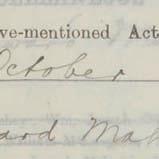 ve-mentioned Act
October
ard Ma